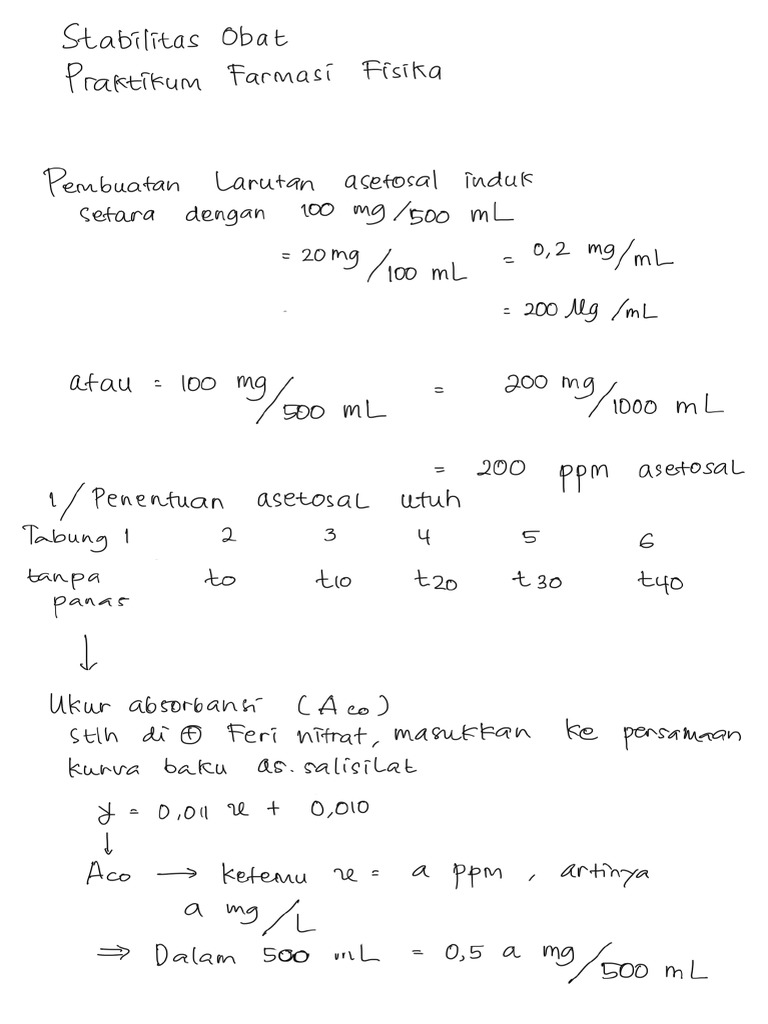 Stabilitas Obat
Praktikum Farmasi Fisika
Pembuatan Larutan asetosal induk
setara dengan 100 mg/500 mL
= 20 mg/100 mL = 0,2 mg/mL
= 200 μg/mL
atau = 100 mg/500 mL = 200 mg/1000 mL
= 200 ppm asetosal
1/ Penentuan asetosal utuh
Tabung 1 2 3 4 5 6
tanpa panas t0 t10 t20 t30 t40
↓
Ukur absorbansi (Aco)
stlh di ⊕ Feri nitrat, masukkan ke persamaan
kurva baku as. salisilat
y = 0,011 x + 0,010
↓
Aco → ketemu x = a ppm, artinya
a mg/L
⇒ Dalam 500 mL = 0,5 a mg/500 mL